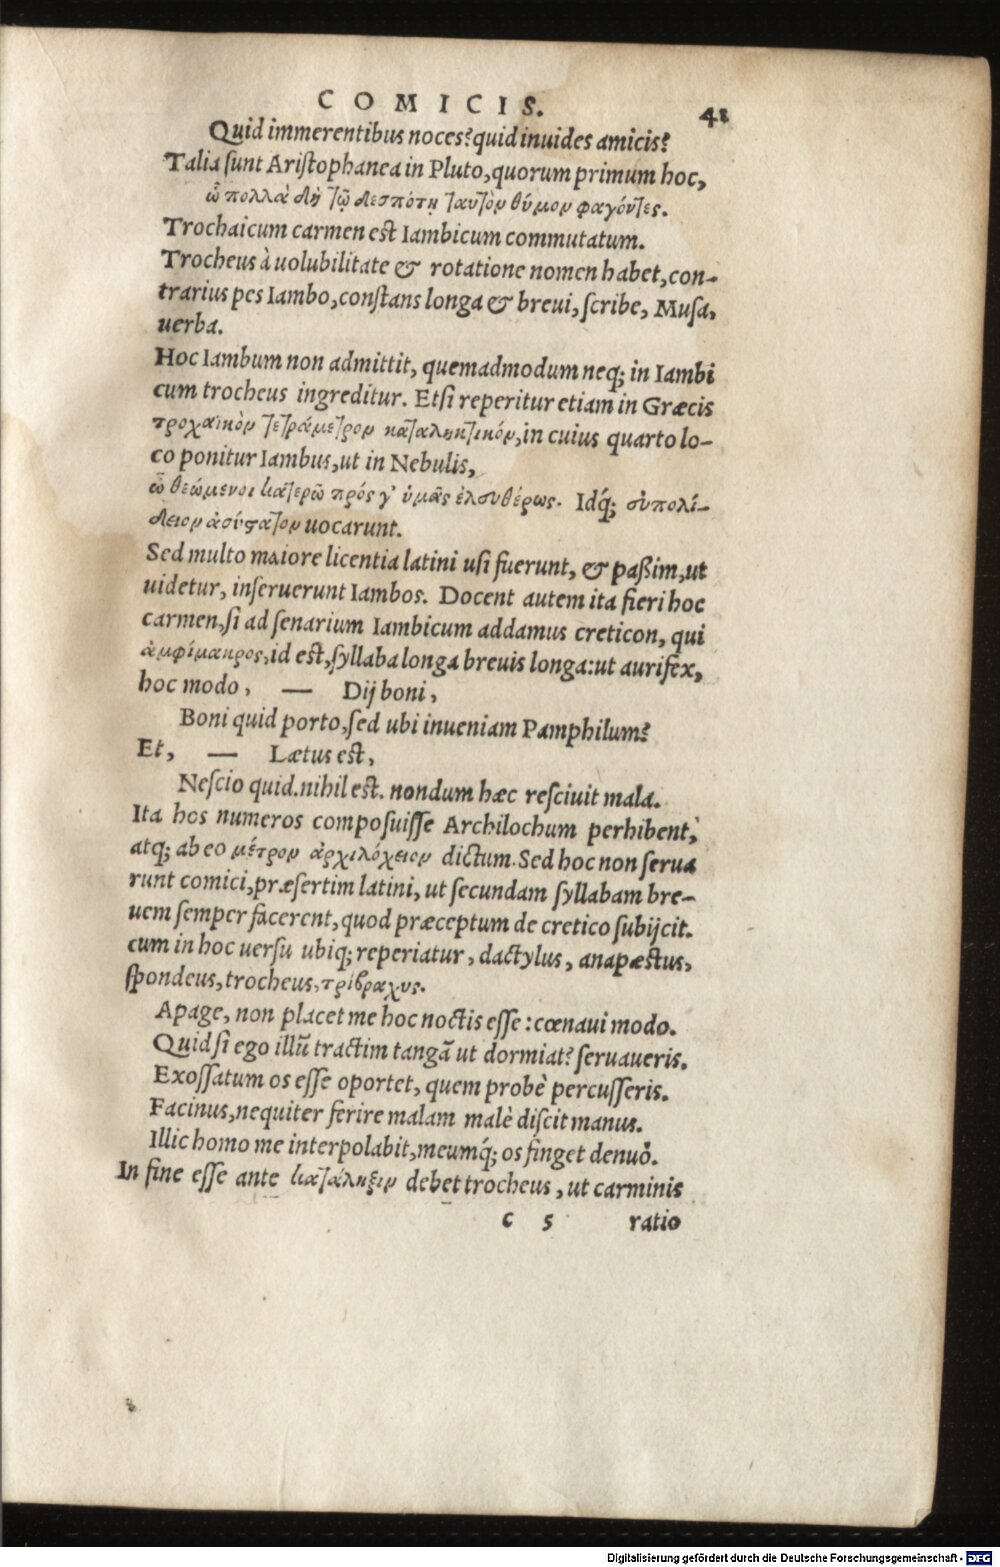 COMICIS. 41
Quid immerentibus noces? quid inuides amicis?
Talia sunt Aristophanea in Pluto, quorum primum hoc,
ὦ πολλὰ δὴ τῷ δεσπότῃ ταυτὸν θύμον φαγόντες.
Trochaicum carmen est Iambicum commutatum.
Trocheus à uolubilitate & rotatione nomen habet, con-
trarius pes Iambo, constans longa & breui, scribe, Musa,
uerba.
Hoc Iambum non admittit, quemadmodum neq; in Iambi
cum trocheus ingreditur. Etsi reperitur etiam in Græcis
τροχαϊκὸν τετράμετρον καταληκτικόν, in cuius quarto lo-
co ponitur Iambus, ut in Nebulis,
ὦ θεώμενοι κατερῶ πρός γ' ὑμᾶς ἐλευθέρως. Idq́; εὐπολί-
δειον ἀσύστατον uocarunt.
Sed multo maiore licentia latini usi fuerunt, & paßim, ut
uidetur, inseruerunt Iambos. Docent autem ita fieri hoc
carmen, si ad senarium Iambicum addamus creticon, qui
ἀμφίμακρος, id est, syllaba longa breuis longa: ut aurifex,
hoc modo, — Dij boni,
Boni quid porto, sed ubi inueniam Pamphilum?
Et, — Lætus est,
Nescio quid. nihil est. nondum hæc resciuit mala.
Ita hos numeros composuisse Archilochum perhibent,
atq; ab eo μέτρον ἀρχιλόχειον dictum. Sed hoc non serua
runt comici, præsertim latini, ut secundam syllabam bre-
uem semper facerent, quod præceptum de cretico subijcit.
cum in hoc uersu ubiq; reperiatur, dactylus, anapæstus,
spondeus, trocheus, τρίβραχυς.
Apage, non placet me hoc noctis esse: cœnaui modo.
Quid si ego illū tractim tangā ut dormiat? seruaueris.
Exossatum os esse oportet, quem probè percusseris.
Facinus, nequiter ferire malam malè discit manus.
Illic homo me interpolabit, meumq́; os finget denuò.
In fine esse ante κατάληξιν debet trocheus, ut carminis
c 5 ratio
Digitalisierung gefördert durch die Deutsche Forschungsgemeinschaft - DFG